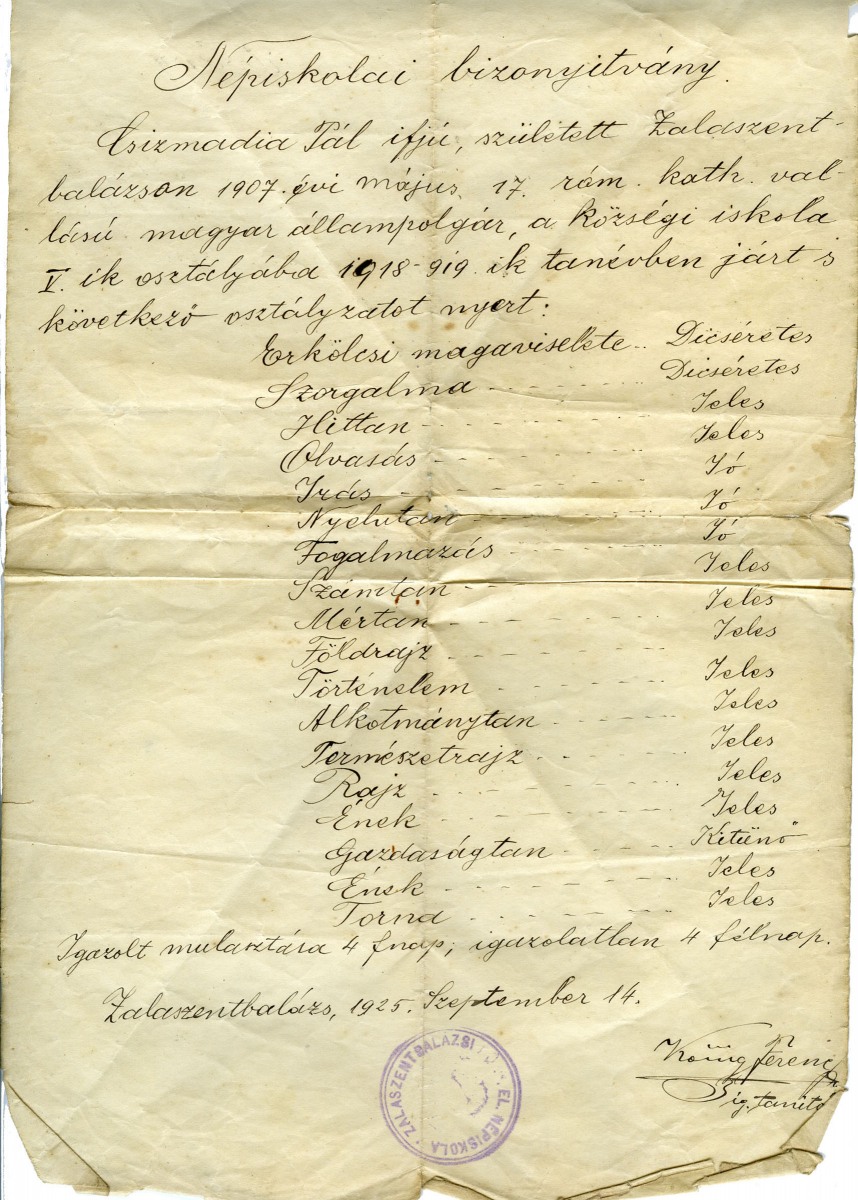 Népiskolai bizonyitvány.
Csizmadia Pál ifjú, született Zalaszent-
balázson 1907. évi május 17. róm. kath. val-
lású magyar állampolgár, a községi iskola
V. ik osztályába 1918-919. ik tanévben járt s
következő osztályzatot nyert:
Erkölcsi magaviselete .. Dicséretes
Szorgalma Dicséretes
Hittan Jeles
Olvasás Jeles
Irás Jó
Nyelvtan Jó
Fogalmazás Jó
Számtan Jeles
Mértan Jeles
Földrajz Jeles
Történelem Jeles
Alkotmánytan Jeles
Természetrajz Jeles
Rajz Jeles
Ének Jeles
Gazdaságtan Kitünő
Ének Jeles
Torna Jeles
Igazolt mulasztása 4 fnap; igazolatlan 4 félnap.
Zalaszentbalázs, 1925. Szeptember 14.
König Ferenc
ig. tanító
ZALASZENTBALÁZSI EL. NÉPISKOLA